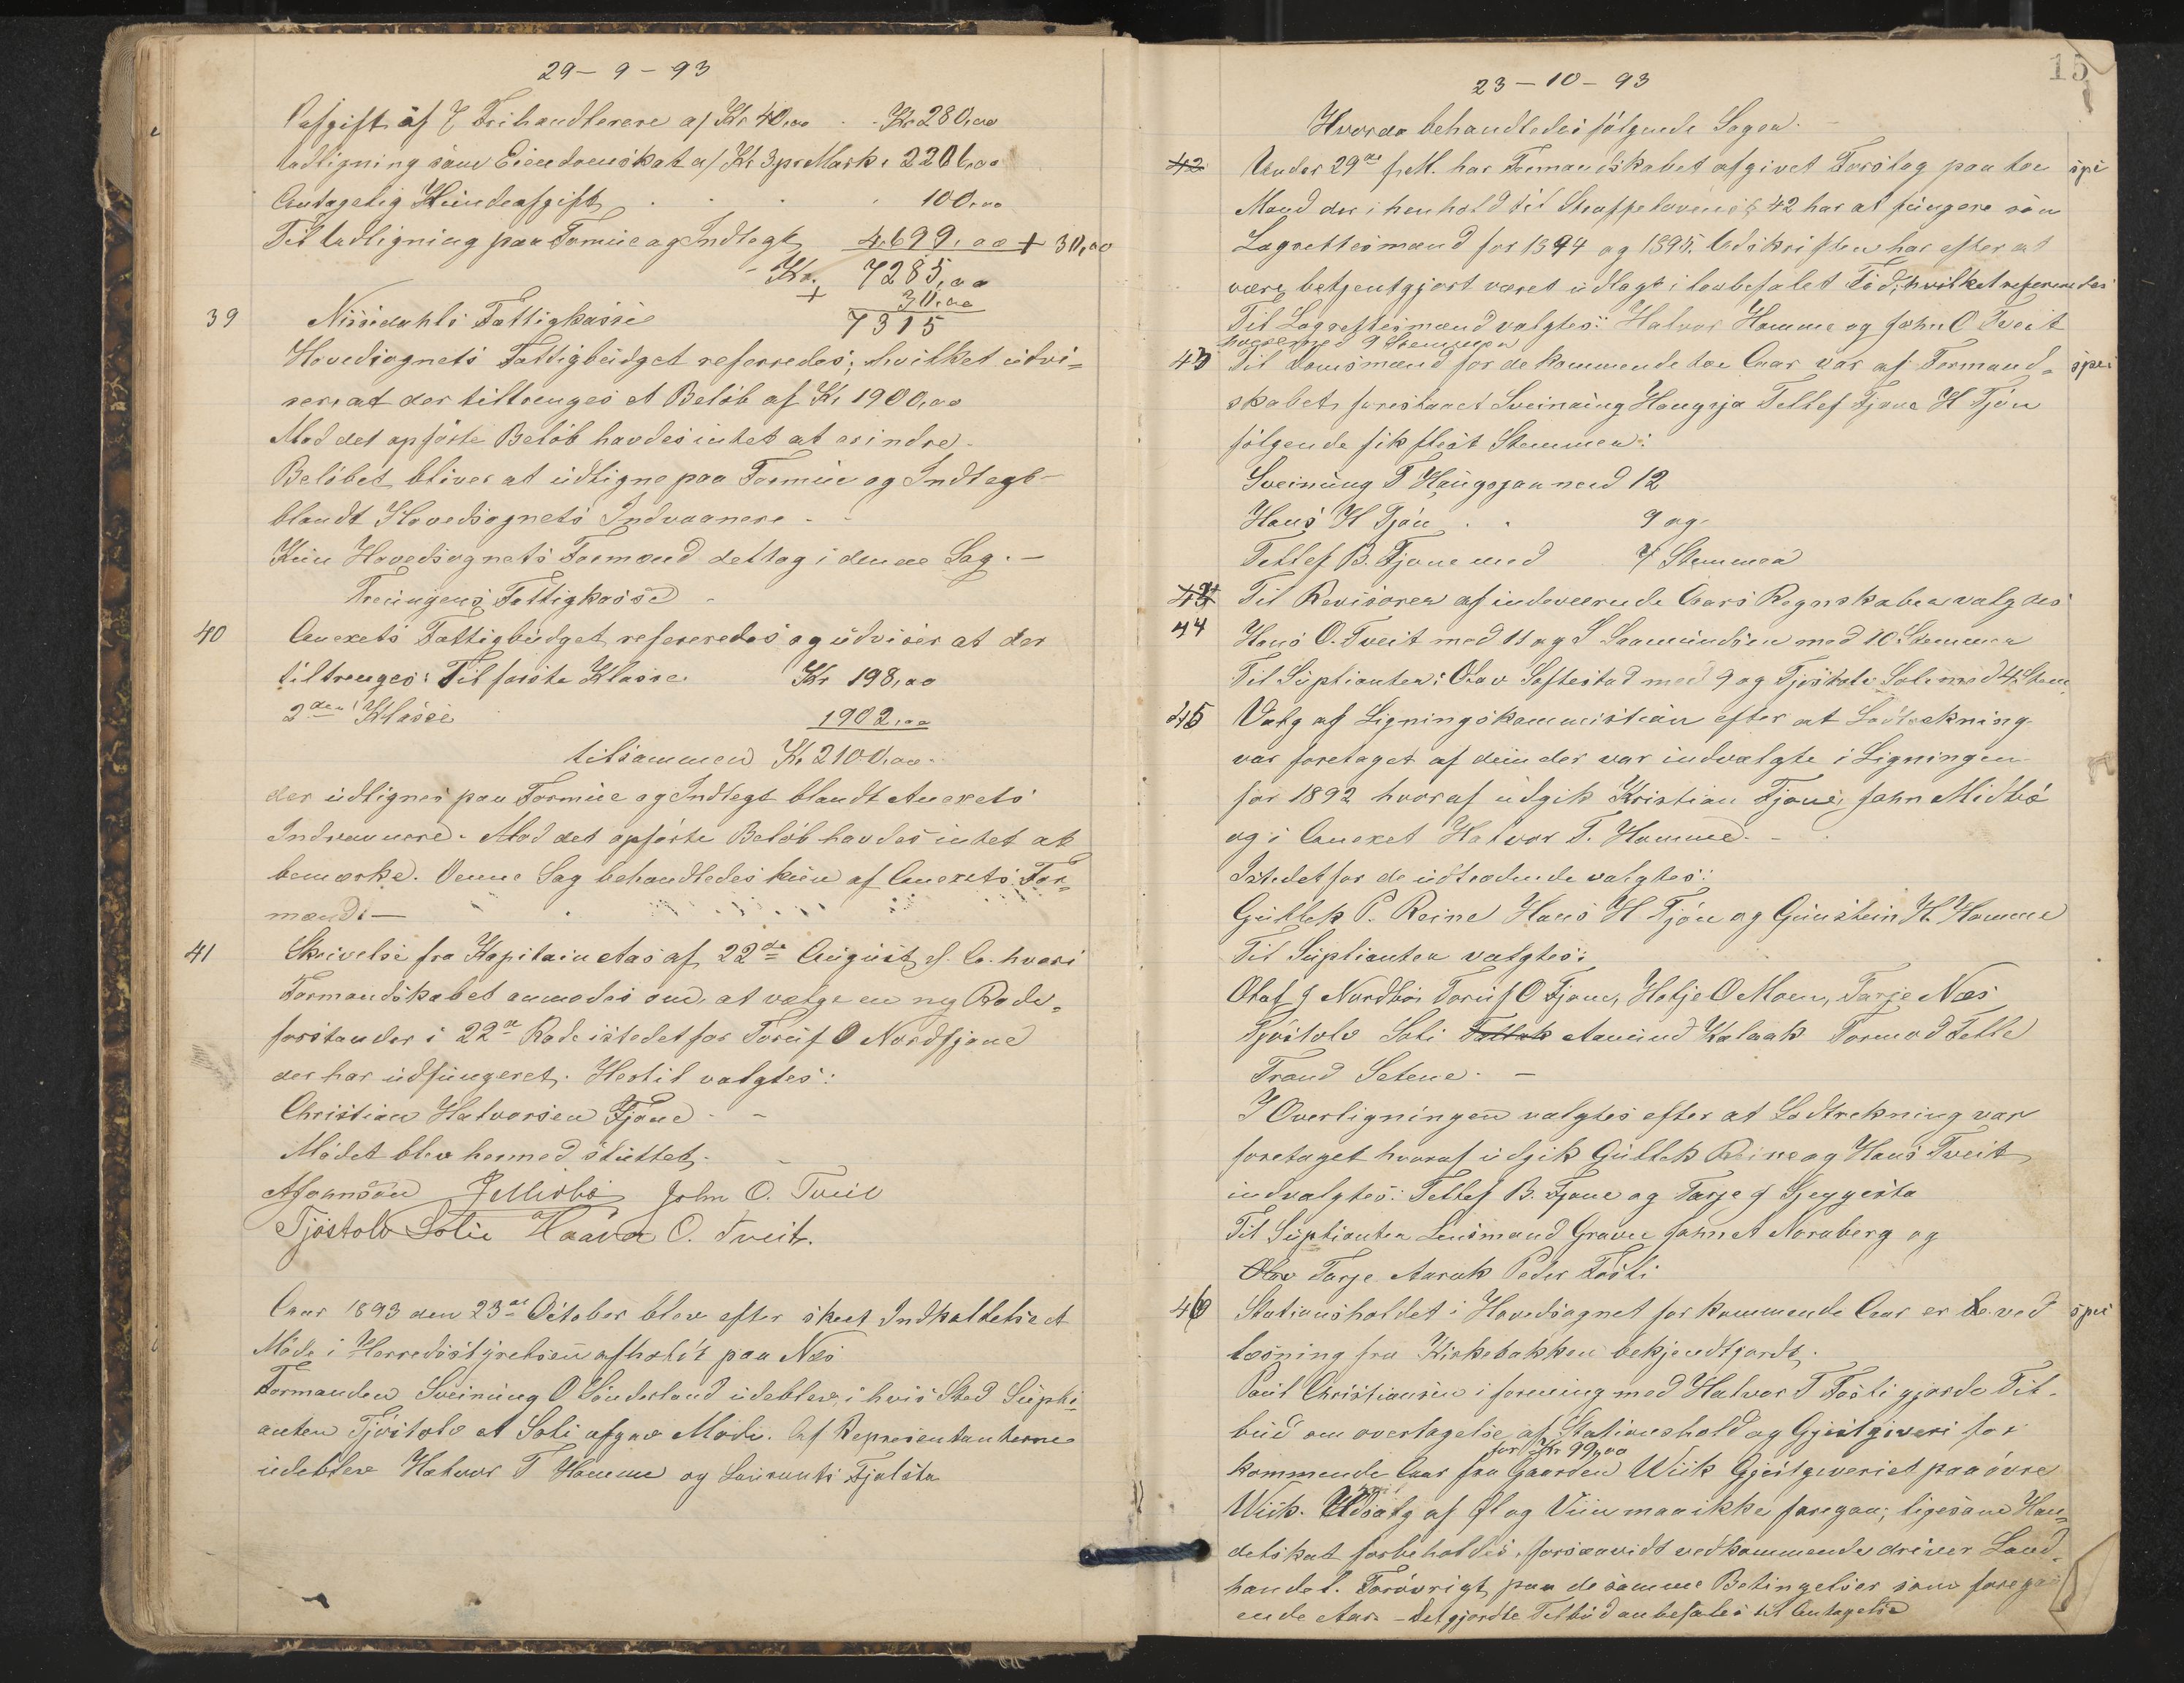 29-9-93
Aafgift af 7 Frihandlerere a/ Kr 40,00 . . Kr 280,00
Udligning som Eiendomskat a/ Kr 3 pr Mark . 2206,00
Antagelig Hundeafgift . . . . 100,00
Til Udligning paa Formue og Indtægt 4,699,00 + 30,00
- Kr. 7285,00
+ 30,00
39 Nissedahls Fattigkasse 7315
Hovedsognets Fattigbudget refereredes; hvilket udvi=
ser, at der tiltrænges et Beløb af Kr 1900,00
Mod det opførte Beløb havdes intet at erindre.
Beløbet bliver at udligne paa Formue og Indtægt
blandt Hovedsognets Indvaanere . -
Kun Hovedsognets Formænd deltog i denne Sag. —
Treungens Fattigkasse -
40 Anexets Fattigbudget refereredes og udviser at der
tiltrænges: Til første Klasse. Kr 198,00
2den Klasse 1902,00
tilsammen Kr 2100,00.
der udlignes paa Formue og Indtægt blandt Anexets
Indvaanere. Mod det opførte Beløb havdes intet at
bemærke. Denne Sag behandledes kun af Anexets For=
mænd. —
41 Skrivelse fra Kapitain Aas af 22de August d. A. hvori
Formandskabet anmodes om, at vælge en ny Rode=
forstander i 22de Rode istedetfor Toruf O Nordfjone
der har udfungeret. Hertil valgtes:
Christian Halvorsen Fjone - -
Mødet blev hermed sluttet. -
John O. Tveit
Tjøstolv Solie Haavor O. Tveit.
Aar 1893 den 23de October blev efter skeet Indkaldelse et
Møde i Herredsstyrelsen afholdt paa Næs
Formanden Sveinung O Sønderland udeblev, i hvis Sted Supli=
anten Tjøstolv A Soli afgav Møde. Af Representanterne
udeblev Halvor T Homme og Laurants Fjalsta
15
23-10-93
Hvorda behandledes følgende Sager. —
42 Under 29de f. M. har Formandskabet afgivet Forslag paa toe spe
Mænd der i henhold til Straffelovens § 42 har at fungere som
Lagrettesmænd for 1894 og 1895. Udskriften har efter at
være betjentgjort været udlagt i lovbefalet Tid, hvilket refereredes
Til Lagrettesmænd valgtes: Halvor Homme og John O Tveit
hver med 9 Stemmer
43 Til Domsmænd for de kommende toe Aar var af Formand= spe
skabet, foreslaaet Sveinung Haugsja Tellef Fjone H Tjøn
følgende fik flest Stemmer:
Sveinung T Haugsjaa med 12
Hans H Tjøn . . 9 og
Tellef B. Fjone med 7 Stemmer
44 Til Revisorer af indeværende Aars Regnskaber valgtes
Hans O. Tveit med 11 og S Saamundsen med 10 Stemmer
Til Suplianter: Olav Toftestad med 9 og Tjøstolv Soli med 4 Stem
45 Valg af Ligningskommission efter at Lodtrekning
var foretaget af dem der var indvalgte i Ligningen
for 1892 hvoraf udgik Kristian Fjone, John Midbø
og i Anexet Halvor T. Homme. —
Istedetfor de udtrædende valgtes:
Gullek P. Reine Hans H Tjøn og Gunstein H. Homme
Til Suplianter valgtes:
Olaf J Nordbø Toruf O Fjone, Hølje O Moen, Tarje Næs
Tjøstolv Soli Tallak Amund Kalaak Tormod Felle
Trond Setene. —
I Overligningen valgtes efter at Lodtrekning var
foretaget hvoraf udgik Gullek Reine og Hans Tveit
indvalgtes: Tellef B. Fjone og Tarje J
Til Suplianter Lensmand Grave John A Noraberg og
Olav Tarje Aaruk Peder Fosli
46 Stationsholdet i Hovedsognet for kommende Aar er be. ved spe
læsning fra Kirkebakken bekjendtgjordt.
Poul Christiansen i forening med Halvor T Fosli gjorde Til-
bud om overtagelse af Stationshold og Gjestgiveri for
for Kr 99,00
kommende Aar fra Gaarden Wiik Gjestgiveriet paa øvre
Wiik. Udsalg af Øl og Viin maa ikke foregaa; ligesom Han=
delskat forbeholdes, forsaavidt vedkommende driver Land=
handel. Forøvrigt paa de samme Betingelser som foregaa
ende Aar. - Det gjordte Tilbud anbefales til Antagelse